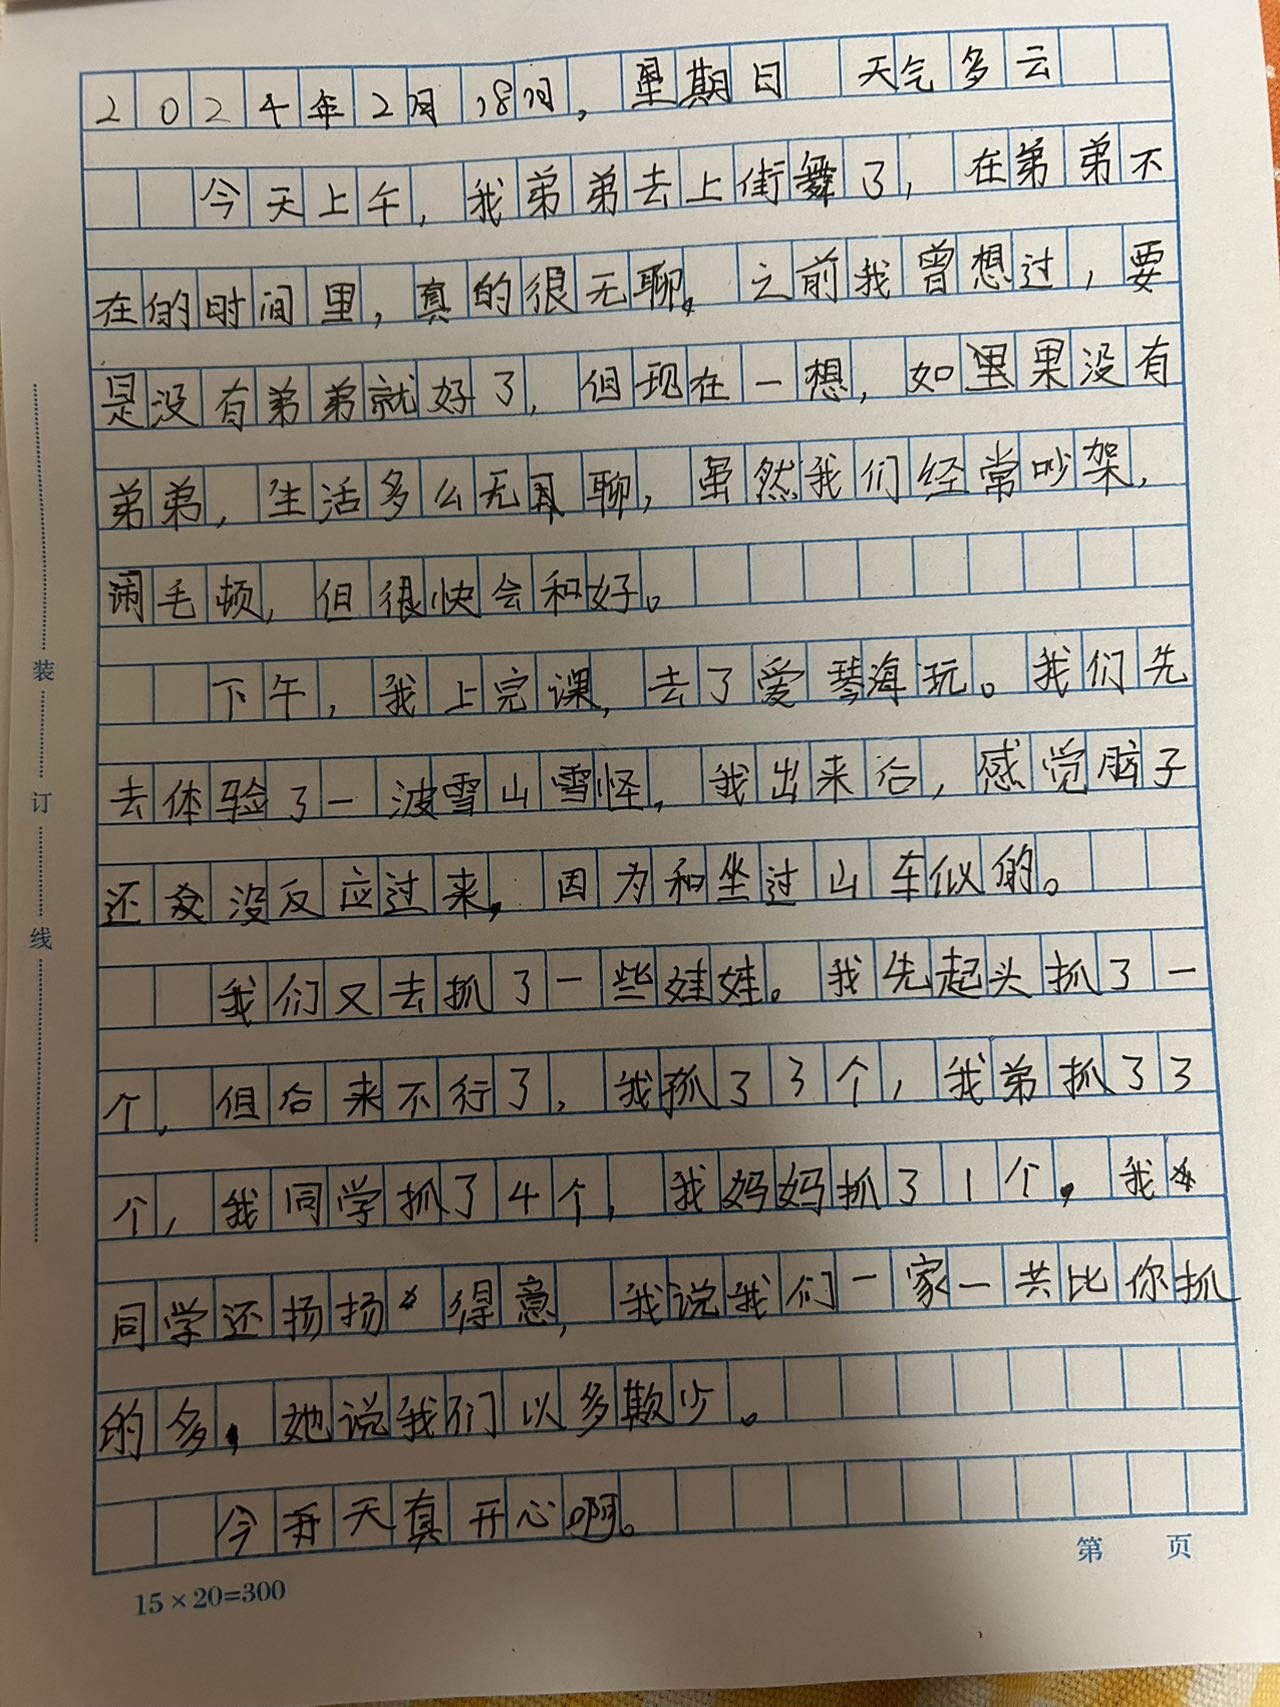 2024年2月18日，星期日 天气多云
今天上午，我弟弟去上街舞了，在弟弟不
在的时间里，真的很无聊。之前我曾想过，要
是没有弟弟就好了，但现在一想，如果没有
弟弟，生活多么无聊，虽然我们经常吵架，
闹毛顿，但很快会和好。
下午，我上完课，去了爱琴海玩。我们先
去体验了一波雪山雪怪，我出来后，感觉脑子
还没反应过来，因为和坐过山车似的。
我们又去抓了一些娃娃。我先起头抓了一
个，但后来不行了，我抓了3个，我弟抓了3
个，我同学抓了4个，我妈妈抓了1个，我
同学还扬扬得意，我说我们一家一共比你抓
的多，她说我们以多欺少。
今天真开心啊。
装
订
线
15×20=300
第 页